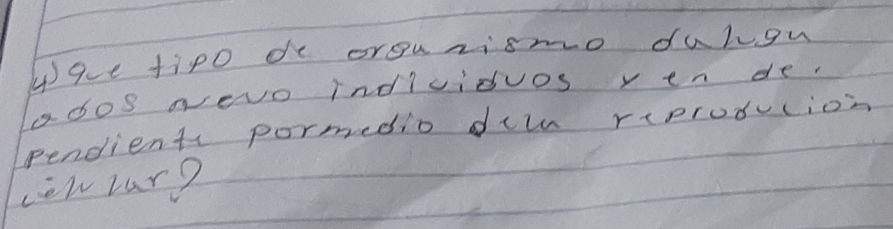 4) que tipo de organismo da lugu
a dos nuevo individuos y en de.
pendiente pormedio dela reproducion
celular?